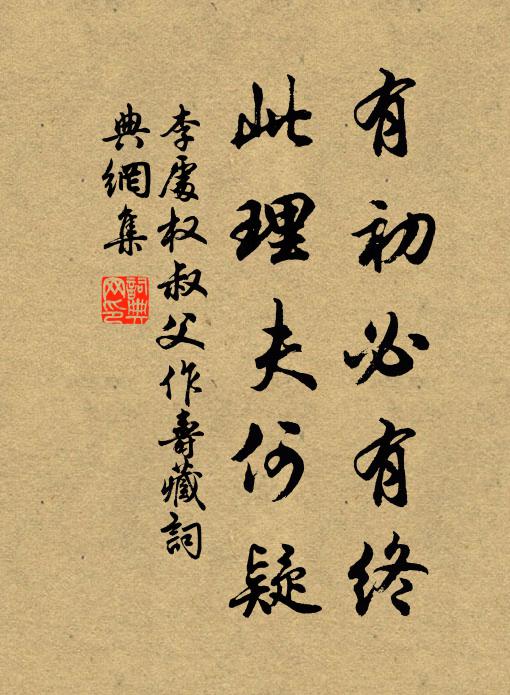 有初必有終
此理夫何疑
李處权叔父作壽藏詞
典網集
詞典
网印